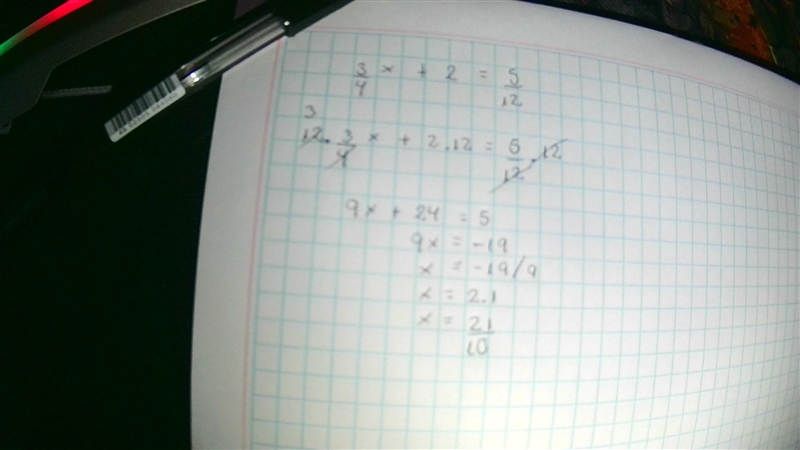 3/4 x + 2 = 5/12
3
12 · 3/4 x + 2.12 = 5/12 · 12
9x + 24 = 5
9x = -19
x = -19/9
x = 2.1
x = 21/10